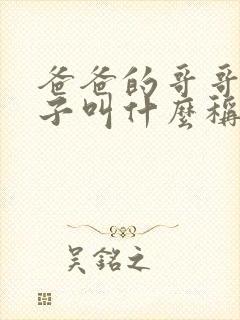 爸爸的哥哥
子叫什麼稱
吴銘之